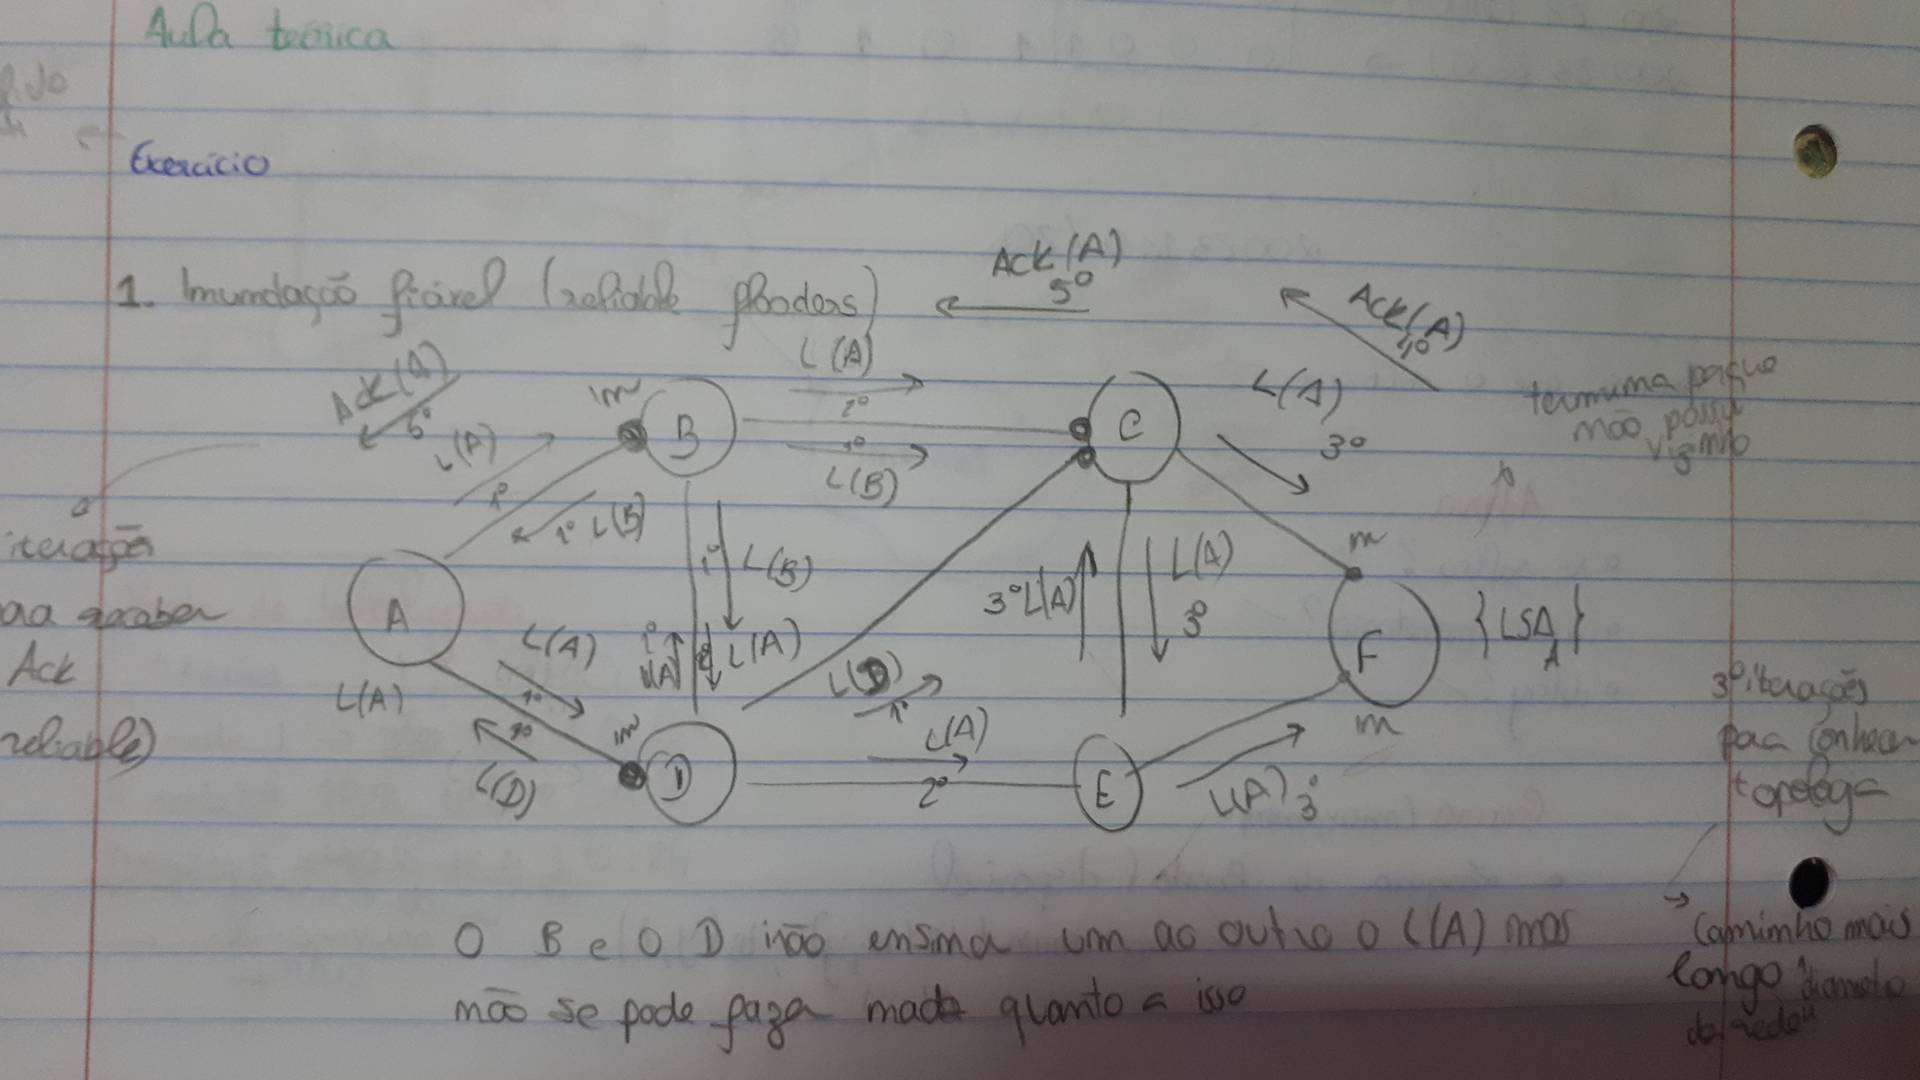 Aula teórica
Exercício
1. Inundação fiável (reliable flooders)
Ack(A)
5º
Ack(A)
4º
Ack(A)
6º
L(A)
1º
1º L(B)
in
B
L(A)
2º
1º
L(B)
C
L(A)
3º
termina porque
não possui
vizinho
iterações
ao receber
Ack
reliable)
A
1º
L(B)
1º
L(A)
2º
L(A)
3º L(A)
L(A)
3º
in
F
in
{LSA A}
L(A)
1º
L(A)
1º
L(D)
in
D
L(D)
1º
L(A)
2º
E
L(A) 3º
3º iterações
para conhecer
topologia
→ Caminho mais
longo "diametro
da rede"
O B e O D não ensina um ao outro o L(A) mas
não se pode fazer nada quanto a isso